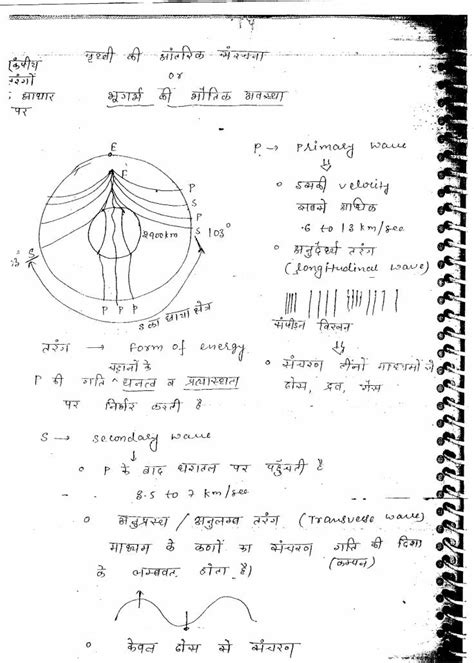 14
पृथ्वी की आंतरिक संरचना
or
भूगर्भ की भौतिक अवस्था
तरंगों
आधार
पर
E
F
P
S
P
S
2900km
103°
S
P P P
S का छाया क्षेत्र
P → Primary wave
० इसकी velocity
सबसे अधिक
6 to 13 km/sec
० अनुदैर्ध्य तरंग
(longitudinal wave)
संपीडन विरलन
० संचरण तीनों माध्यमों से
ठोस, द्रव, गैस
तरंग → form of energy
चट्टानों के
P की गति घनत्व व प्रत्यास्थता
पर निर्भर करती है
S → secondary wave
० P के बाद धरातल पर पहुँचती है
3.5 to 7 km/sec
० अनुप्रस्थ / अनुलम्ब तरंग (Transverse wave)
माध्यम के कणों का संचरण गति की दिशा
(कम्पन)
के लम्बवत होता है।
० केवल ठोस से संचरण